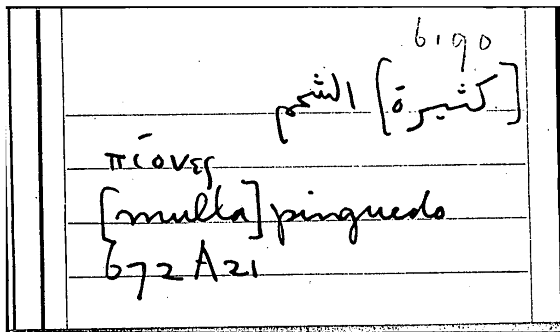 6.90
[كثيرة] الشحم
πίονες
[multa] pinguedo
672 A21